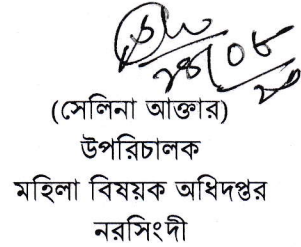 (সেলিনা আক্তার)
উপরিচালক
মহিলা বিষয়ক অধিদপ্তর
নরসিংদী